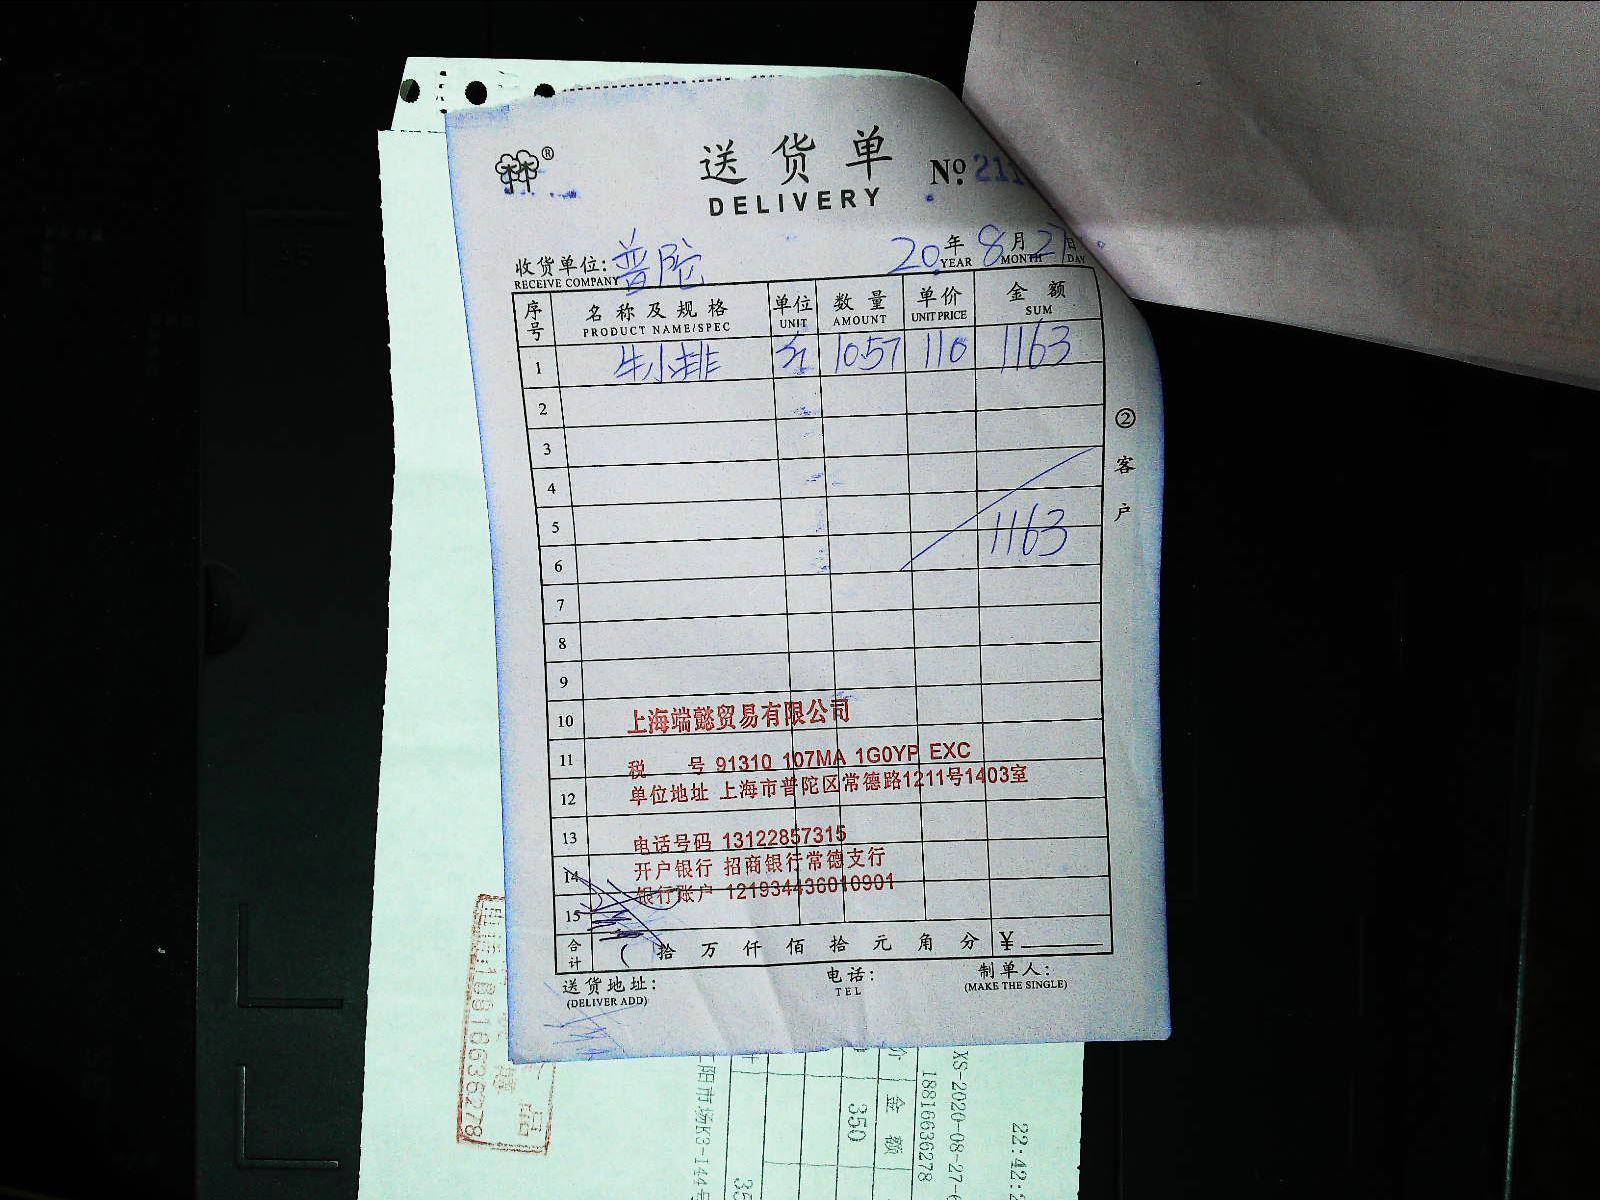 ®
送货单
DELIVERY
No. 211
收货单位: 普陀
RECEIVE COMPANY
20 年 8 月 27 日
YEAR MONTH DAY
序号 名称及规格 单位 数量 单价 金额
PRODUCT NAME/SPEC UNIT AMOUNT UNIT PRICE SUM
1 牛小排 10.57 110 1163
2
3
4
5
6 1163
7
8
9
10
11
12
13
14
15
上海端懿贸易有限公司
税 号 91310 107MA 1G0YP EXC
单位地址 上海市普陀区常德路1211号1403室
电话号码 13122857315
开户银行 招商银行常德支行
银行账户 121934436010901
合计 拾 万 仟 佰 拾 元 角 分 ¥
送货地址: 电话: 制单人:
(DELIVER ADD) TEL (MAKE THE SINGLE)
②客户
电话:18816636278
XS-2020-08-27-
18816636278
22:42:
金额
350
阳市场K3-144号